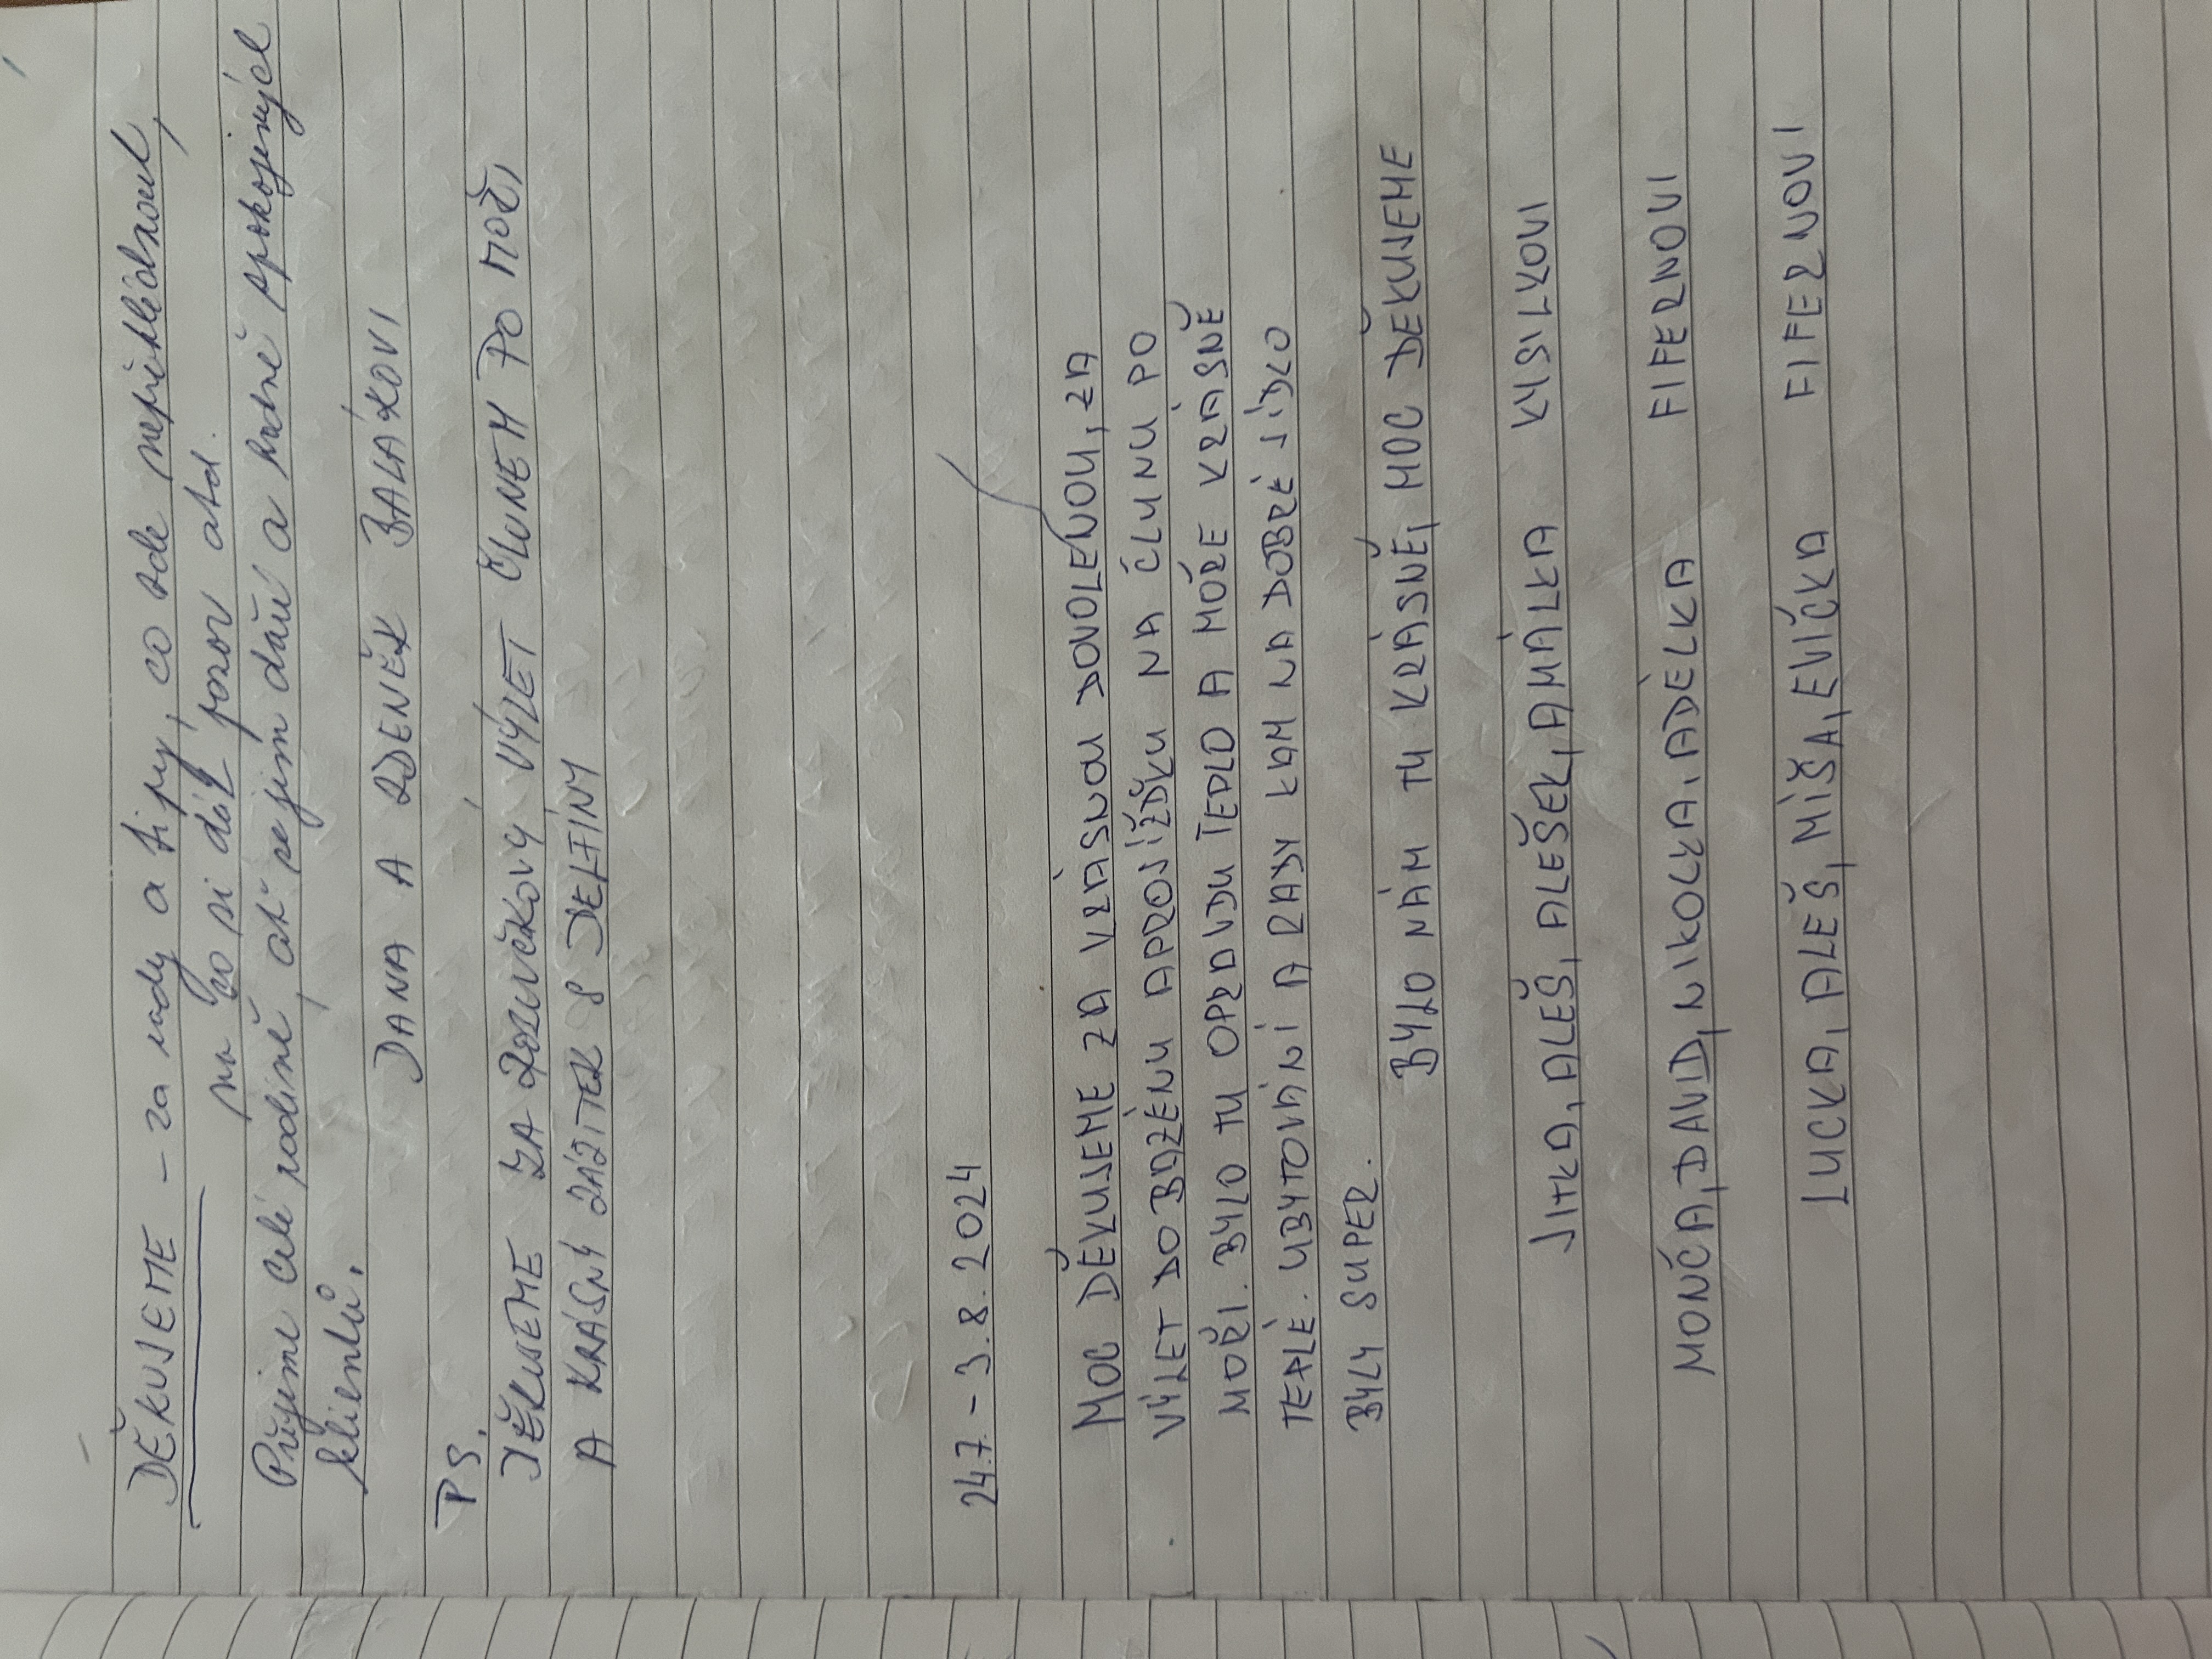 DĚKUJEME - za rady a tipy, co zde nepřehlédnout,
na co si dát pozor atd.
Přejeme celé rodině, ať se jim daří a hodně spokojených
klientů.
DANA A ZDENĚK BALÁKOVI
PS.
DĚKUJEME ZA ROZLUČKOVÝ VÝLET ČLUNEM PO MOŘI,
A KRÁSNÝ ZÁŽITEK S DELFÍNY
24.7. - 3.8. 2024
MOC DĚKUJEME ZA KRÁSNOU DOVOLENOU, ZA
VÝLET DO BAZÉNU A PROJÍŽĎKU NA ČLUNU PO
MOŘI. BYLO TU OPRAVDU TEPLO A MOŘE KRÁSNĚ
TEPLÉ. UBYTOVÁNÍ A RAKY KAM NA DOBRÉ JÍDLO
BYLY SUPER.
BYLO NÁM TU KRÁSNĚ, MOC DĚKUJEME
JITKA, ALEŠ, ALEŠEK, AMÁLKA KYSILKOVI
MONČA, DAVID, NIKOLKA, ADÉLKA FIFERNOVI
LUCKA, ALEŠ, MÍŠA, EVIČKA FIFERNOVI